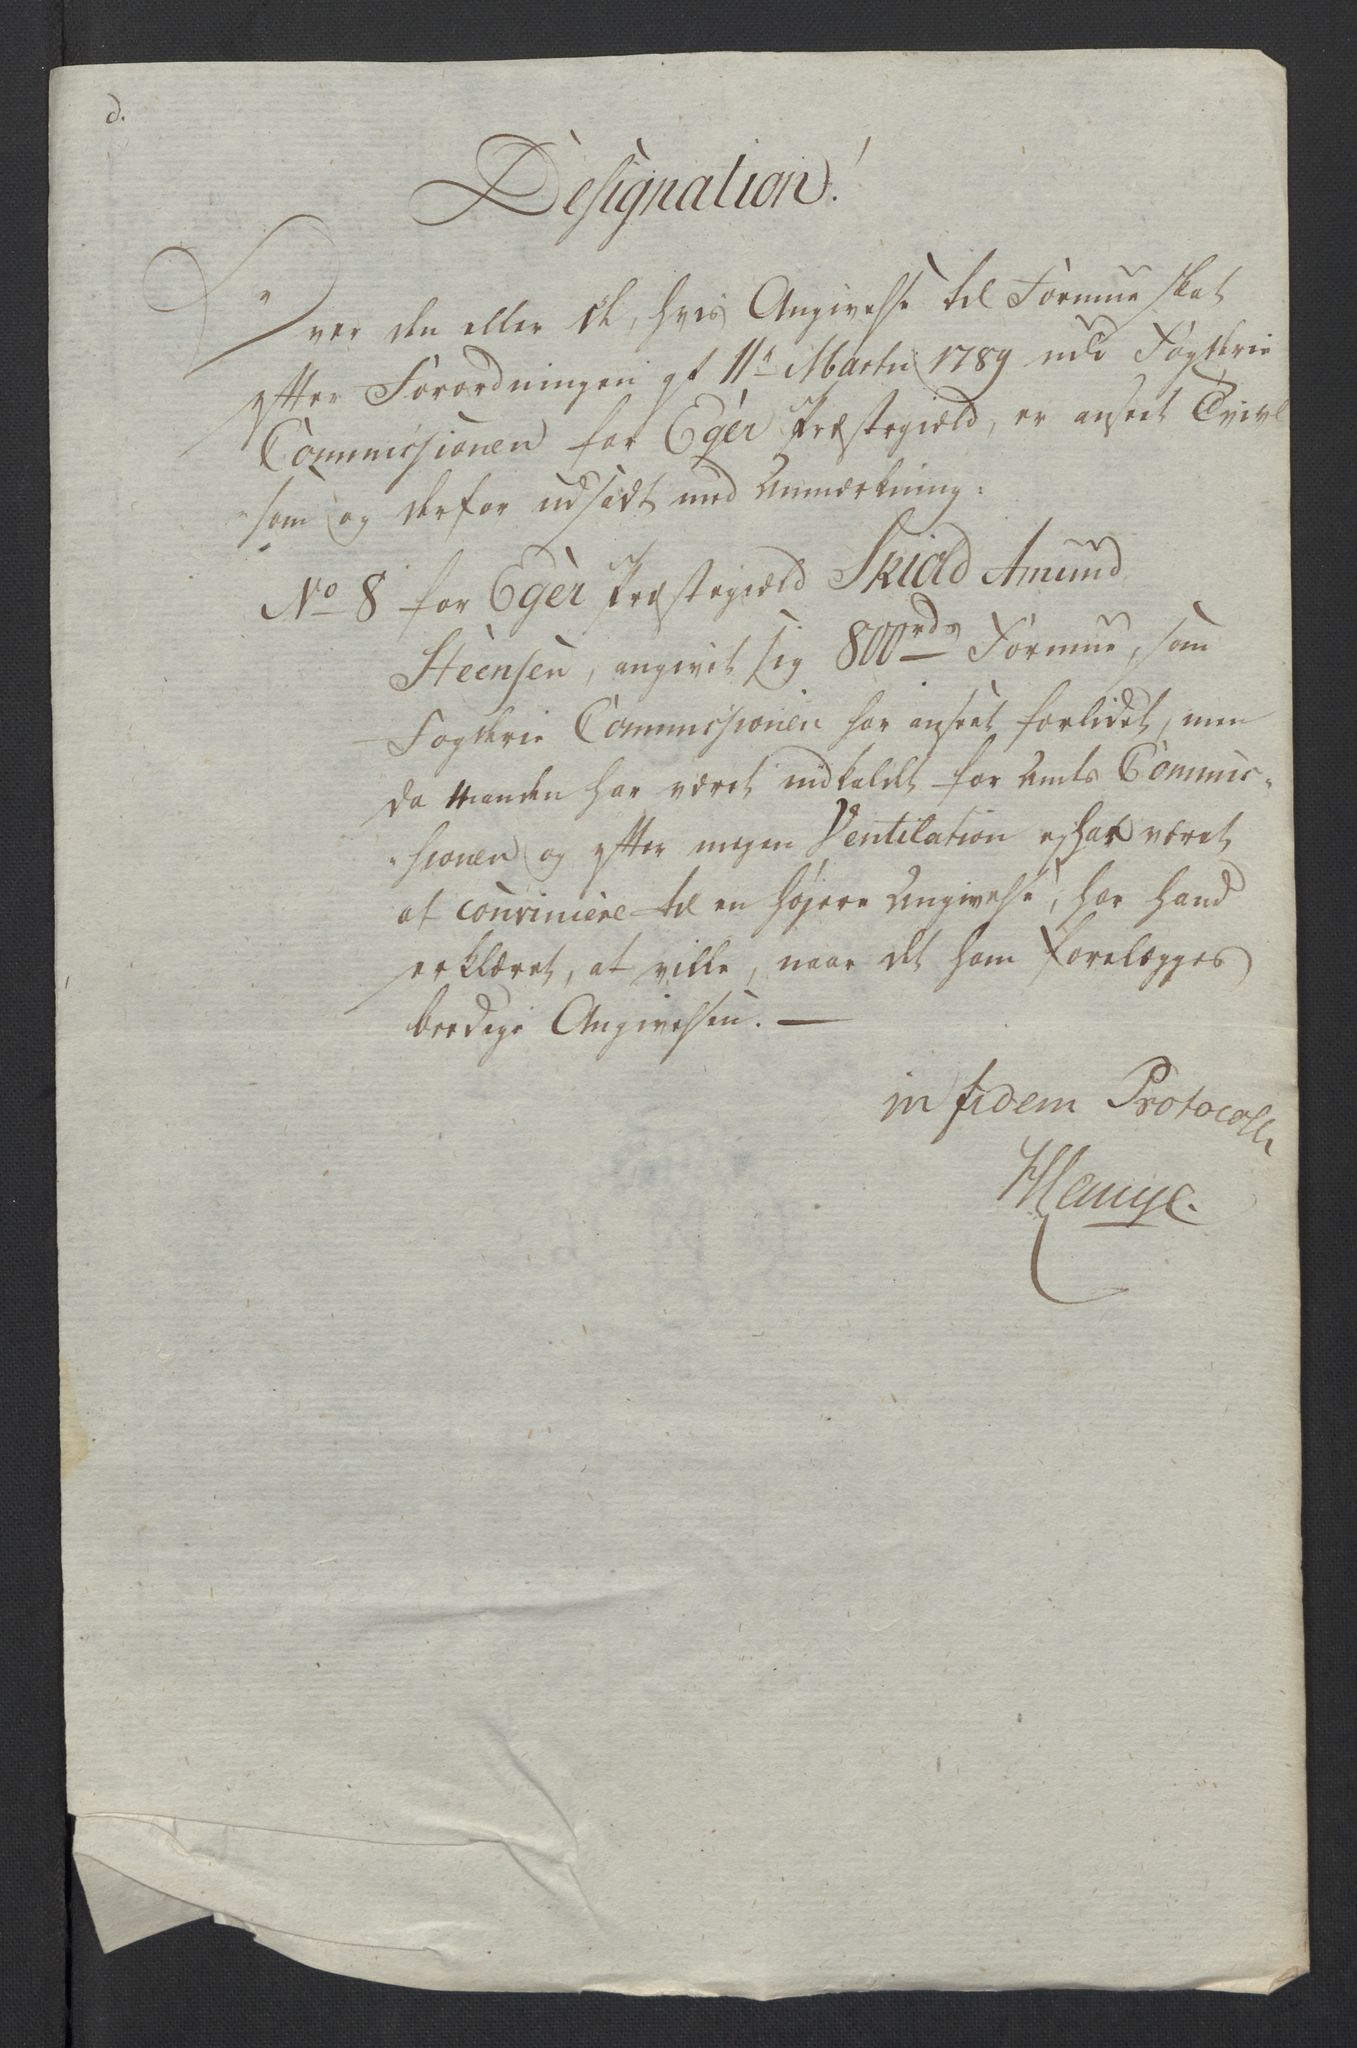 d.
Designation!
Over den eller de, hvis Angivelse til Formue skat
efter Forordningen af 11te Martii 1789 ved Fogderie
Commissionen for Eger Præstegield, er anseet Tvivl
som og derfor udsadt med Anmærkning:
No 8 for Eger Præstegield Skiold Amund
Steensen, angivet sig 800 rdr Formue, som
Fogderie Commissionen har anseet forlidet, men
da Manden har været indkaldt for Amts Commis-
sionen og efter megen Ventilation ej har været
at convincere til en højere Angivelse, har hand
erklæret, at ville, naar det ham forelægges
beedige Angivelsen. —
in fidem Protocolli
Hauge.